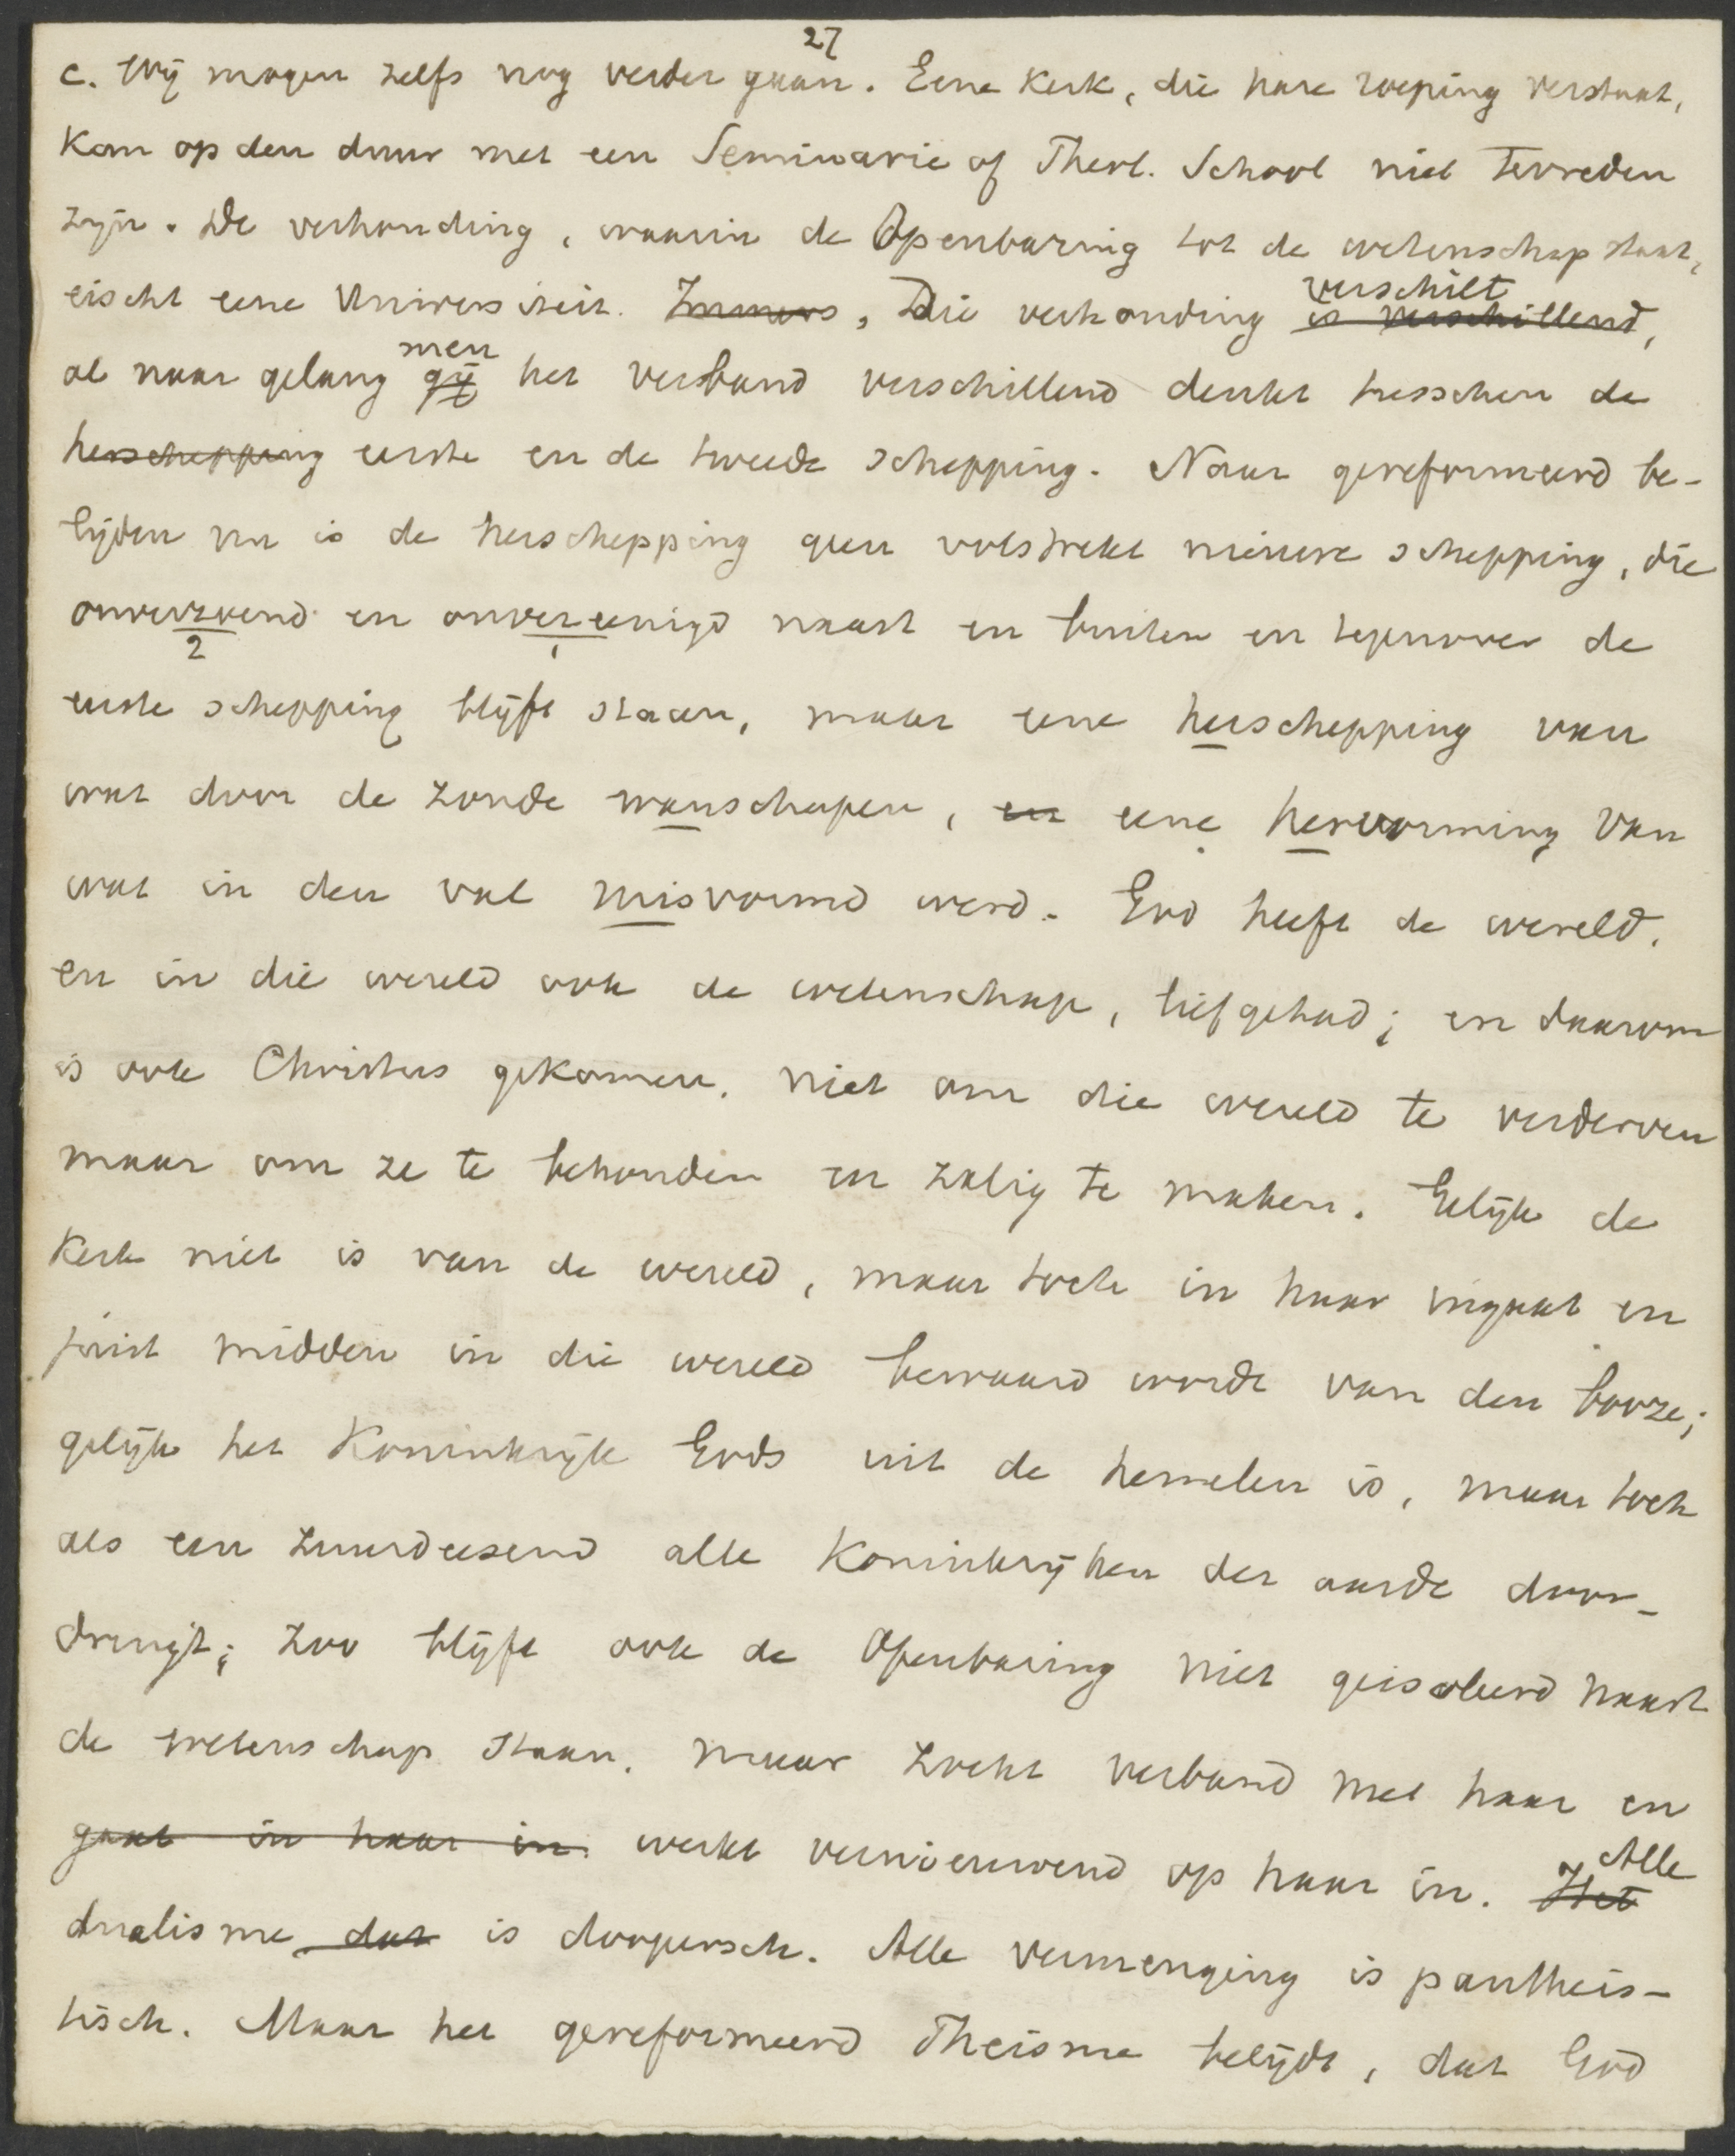 27
c. Wij mogen zelfs nog verder gaan. Eene Kerk, die hare roeping verstaat,
kan op den duur met een Seminarie of Theol. School niet tevreden
zijn. De verhouding, waarin de Openbaring tot de wetenschap staat,
eischt eene Universiteit. Immers, Die verhouding is verschillend, verschilt
al naar gelang gij men het verband verschillend denkt tusschen de
herschepping eerste en de tweede schepping. Naar gereformeerd be-
lijden nu is de herschepping geen volstrekt nieuwe schepping, die
onverzoend en onvereenigd naast en buiten en tegenover de
2 1
eerste schepping blijft staan, maar eene herschepping van
wat door de zonde wanschapen, en eene hervorming van
wat in den val misvormd werd. God heeft de wereld,
en in die wereld ook de wetenschap, liefgehad; en daarom
is ook Christus gekomen, niet om die wereld te verderven
maar om ze te behouden en zalig te maken. Gelijk de
Kerk niet is van de wereld, maar toch in haar ingaat en
juist midden in die wereld bewaard wordt van den booze;
gelijk het Koninkrijk Gods uit de hemelen is, maar toch
als een zuurdeesend alle Koninkrijken der aarde door-
dringt; zoo blijft ook de Openbaring niet geisoleerd naast
de wetenschap staan, maar zoekt verband met haar en
gaat in haar in. werkt vernieuwend op haar in. Het Alle
dualisme dat is doopersch. Alle vermenging is pantheis-
tisch. Maar het gereformeerd Theisme belijdt, dat God